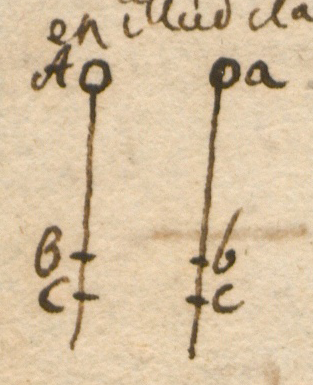 en illud ita
A a
B b
C c